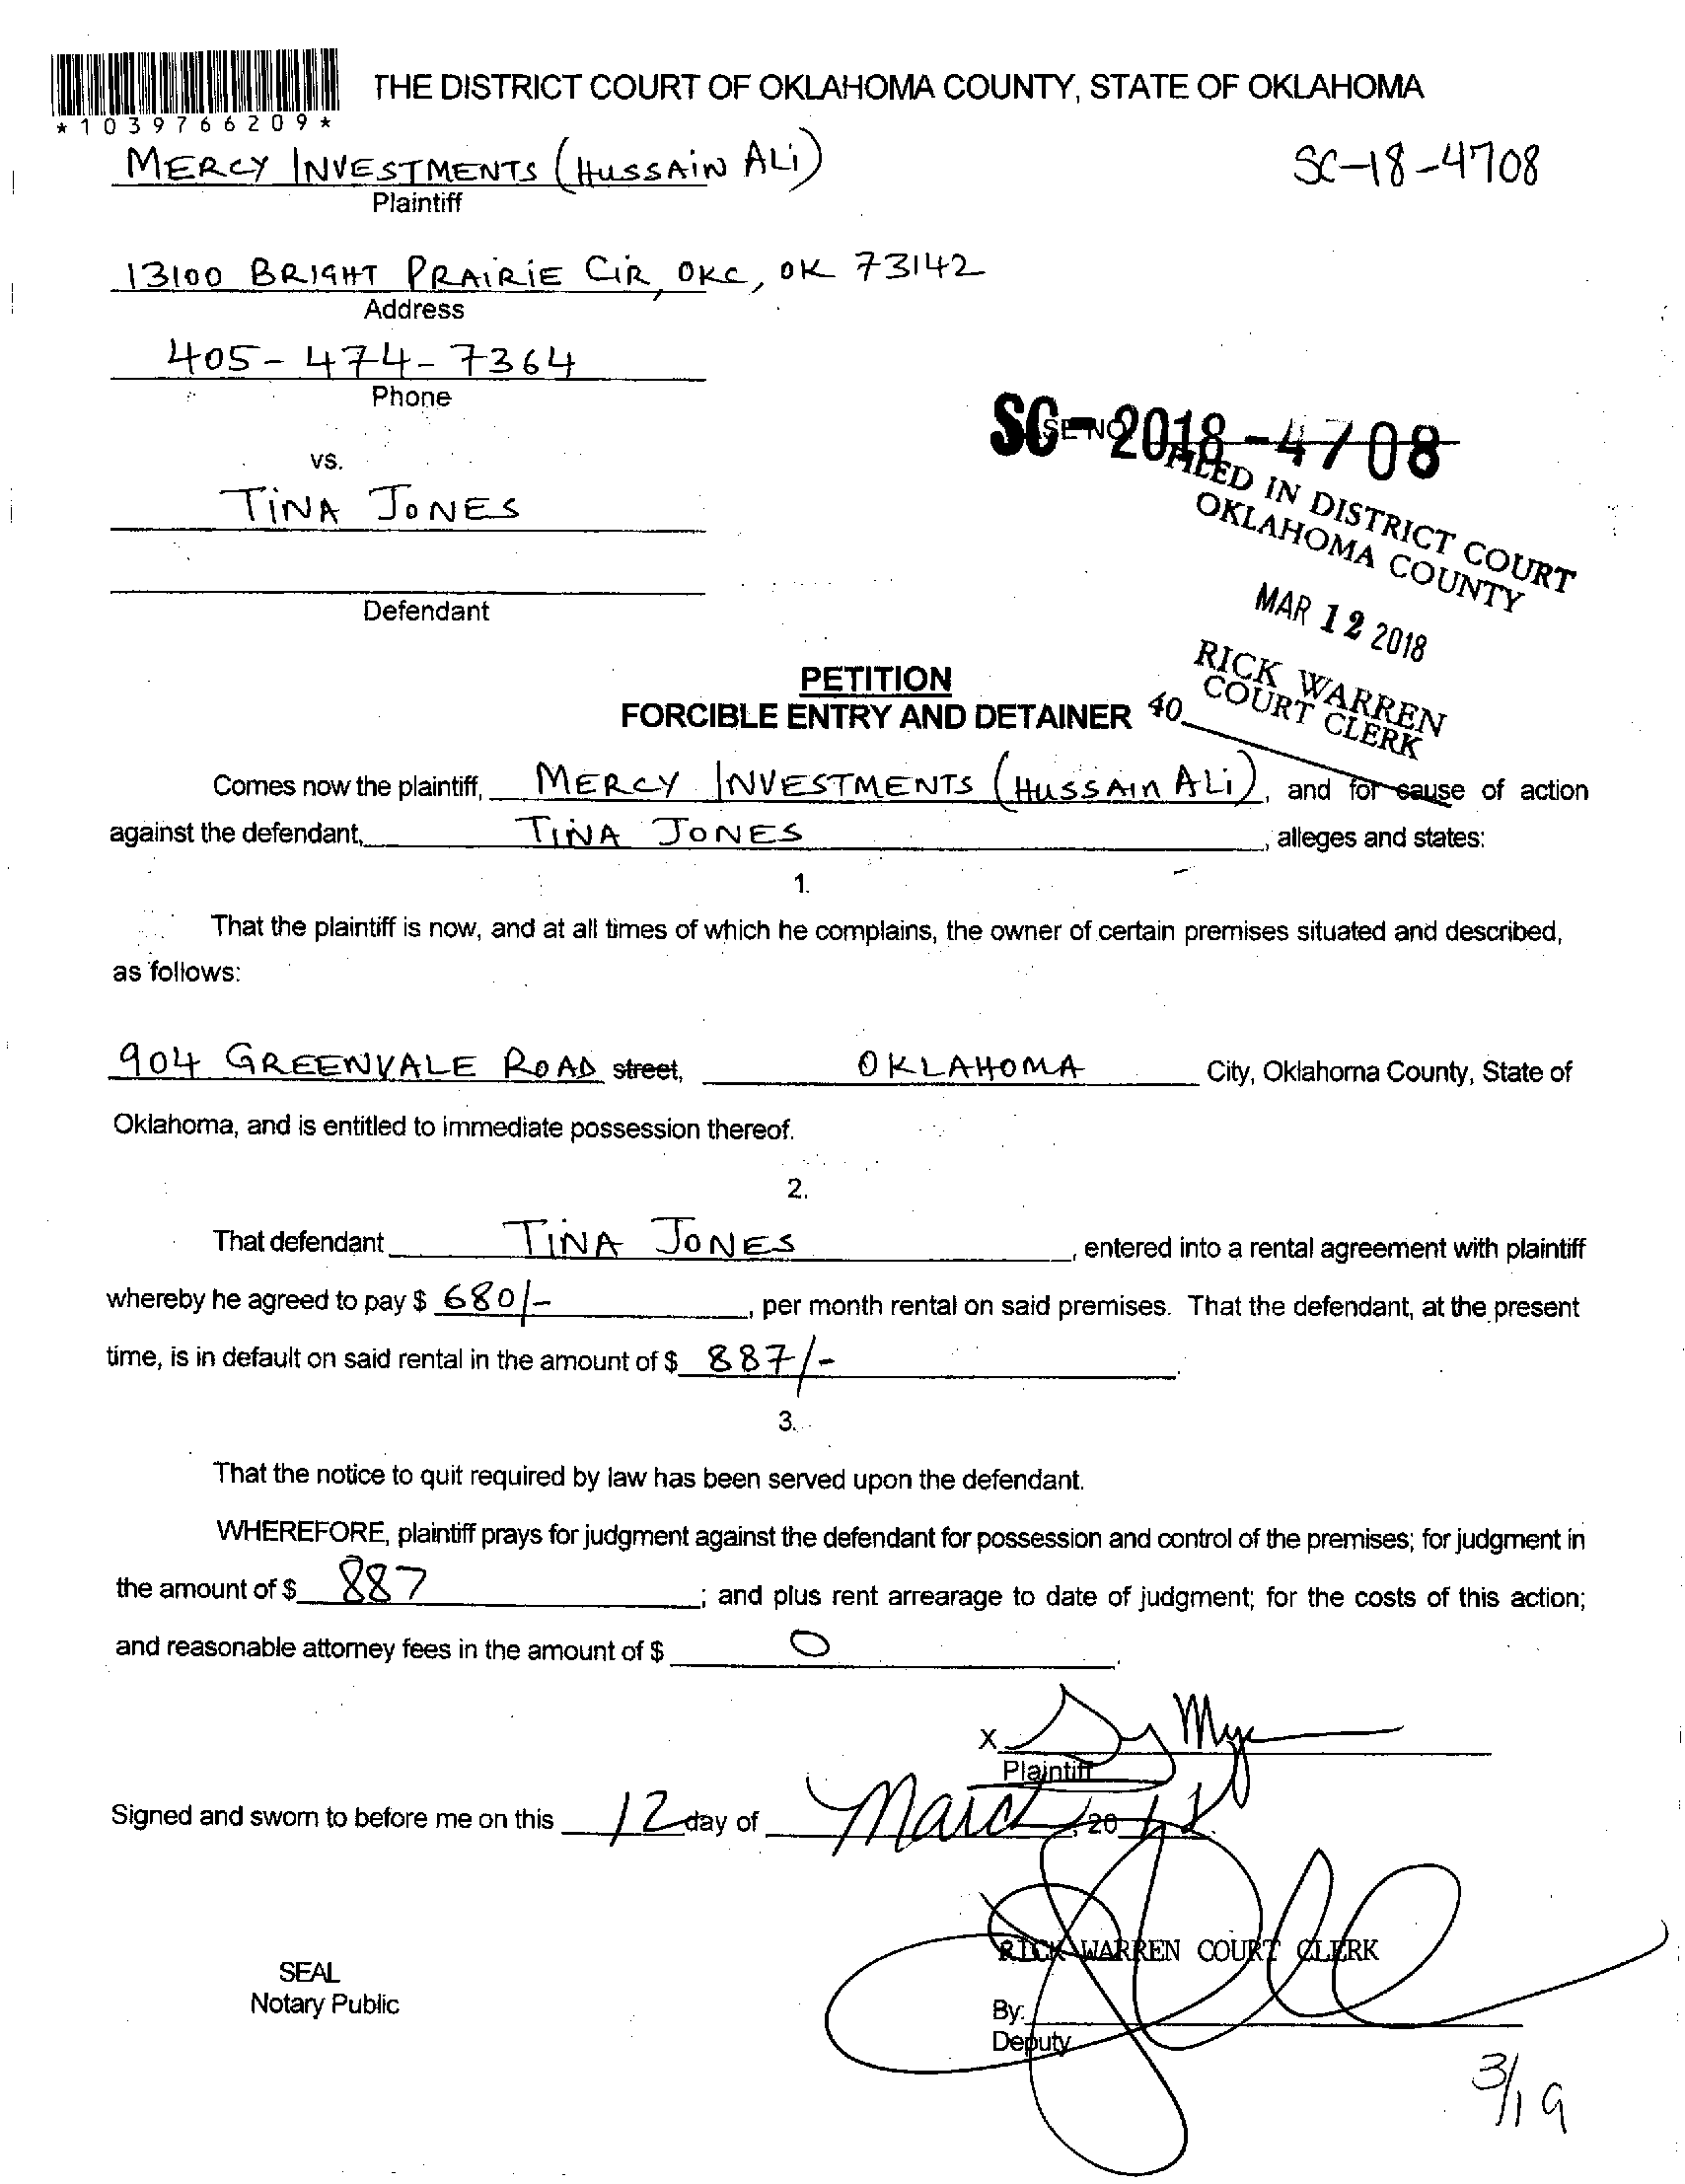 THE DISTRICT COURT OF OKLAHOMA COUNTY, STATE OF OKLAHOMA
*1039766209*
MERCY INVESTMENTS (HUSSAIN ALI)
SC-18-4708
Plaintiff
13100 BRIGHT PRAIRIE CIR, OKC, OK 73142
Address
405-474-7364
Phone
SC-2018-4708
vs.
FILED IN DISTRICT COURT
OKLAHOMA COUNTY
TINA JONES
Defendant
MAR 12 2018
RICK WARREN
COURT CLERK
40
PETITION
FORCIBLE ENTRY AND DETAINER
Comes now the plaintiff, MERCY INVESTMENTS (HUSSAIN ALI), and for cause of action
against the defendant, TINA JONES, alleges and states:
1.
That the plaintiff is now, and at all times of which he complains, the owner of certain premises situated and described,
as follows:
904 GREENVALE ROAD street, OKLAHOMA City, Oklahoma County, State of
Oklahoma, and is entitled to immediate possession thereof.
2.
That defendant TINA JONES, entered into a rental agreement with plaintiff
whereby he agreed to pay $ 680/-, per month rental on said premises. That the defendant, at the present
time, is in default on said rental in the amount of $ 887/-.
3.
That the notice to quit required by law has been served upon the defendant.
WHEREFORE, plaintiff prays for judgment against the defendant for possession and control of the premises; for judgment in
the amount of $ 887; and plus rent arrearage to date of judgment; for the costs of this action;
and reasonable attorney fees in the amount of $ 0.
X
Plaintiff
Signed and sworn to before me on this 12 day of March, 2018.
RICK WARREN COURT CLERK
SEAL
Notary Public
By:
Deputy
3/19